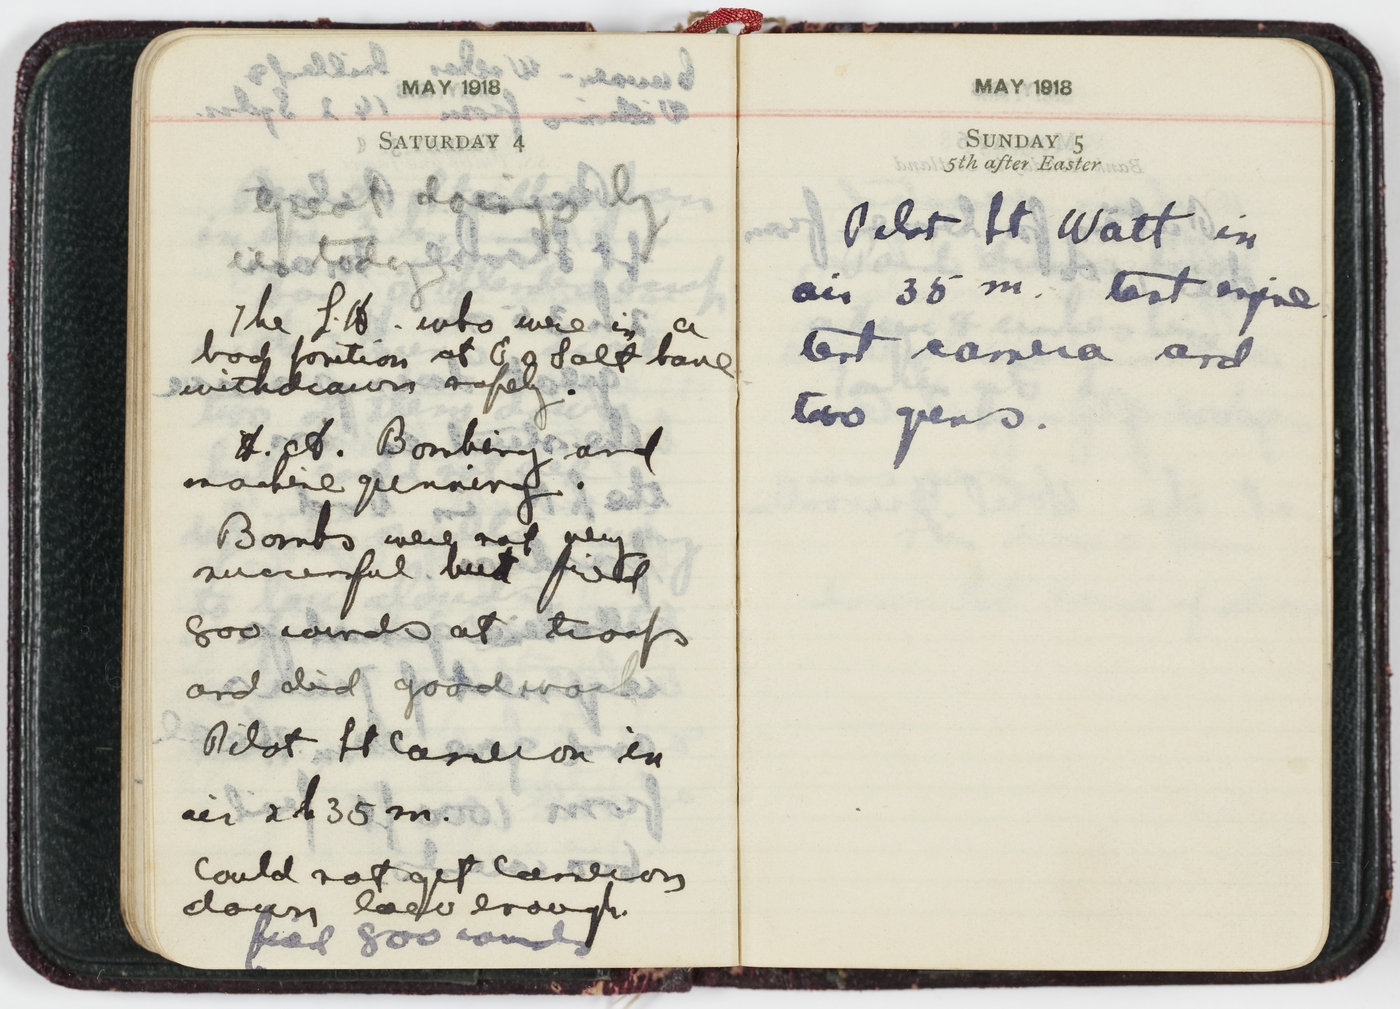 MAY 1918
SATURDAY 4
great doings by
us today
The L.H. who were in a
bad position at Es Salt have
withdrawn safely.
H.A. Bombing and
machine gunning.
Bombs were not very
successful but fired
800 rounds at troops
and did good work
Pilot Lt Cameron in
air 2 h 35 m.
Could not get Cameron
down low enough.
fired 800 rounds
MAY 1918
SUNDAY 5
5th after Easter
Pilot Lt Watt in
air 35 m. test engine
test camera and
two guns.